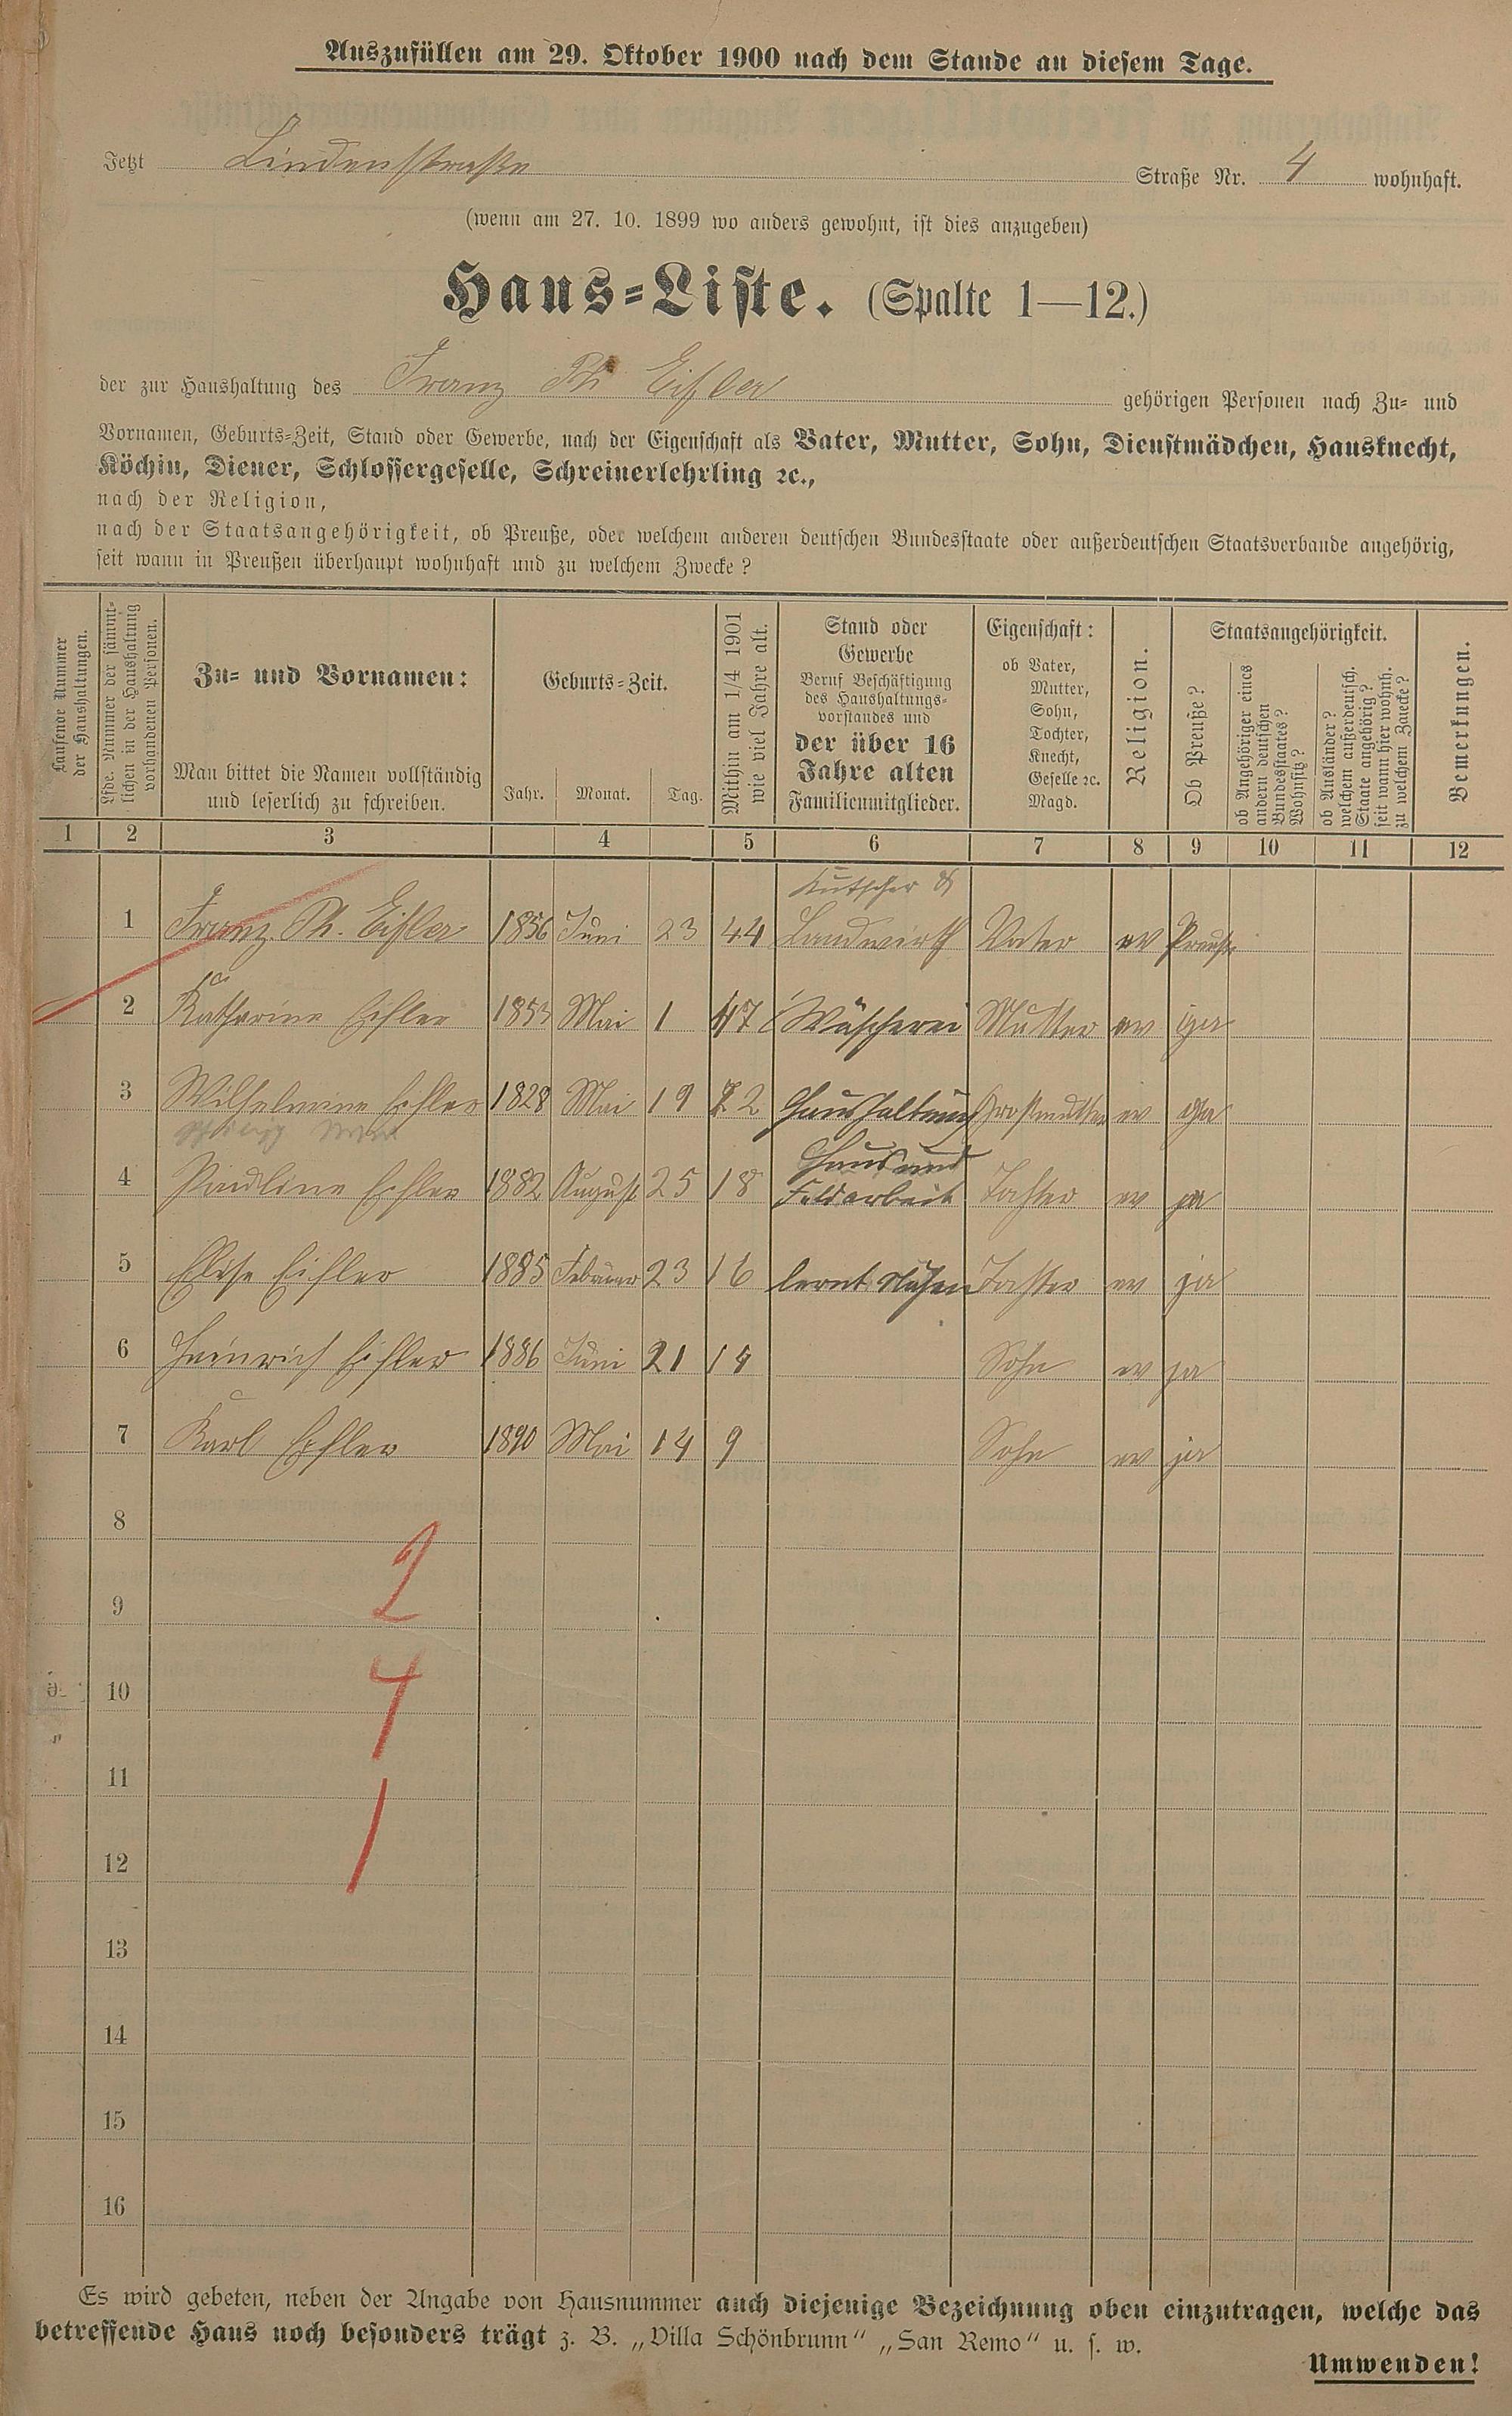 Auszufüllen am 29. Oktober 1900 nach dem Stande an diesem Tage.
Jetzt Lindenstraße Straße Nr. 4 wohnhaft.
(wenn am 27. 10. 1899 wo anders gewohnt, ist dies anzugeben)
Haus-Liste. (Spalte 1—12.)
der zur Haushaltung des Franz Ph Eifler gehörigen Personen nach Zu- und
Vornamen, Geburts-Zeit, Stand oder Gewerbe, nach der Eigenschaft als Vater, Mutter, Sohn, Dienstmädchen, Hausknecht,
Köchin, Diener, Schlossergeselle, Schreinerlehrling ꝛc.,
nach der Religion,
nach der Staatsangehörigkeit, ob Preuße, oder welchem anderen deutschen Bundesstaate oder außerdeutschen Staatsverbande angehörig,
seit wann in Preußen überhaupt wohnhaft und zu welchem Zwecke?
Laufende Nummer
der Haushaltungen.
Lfde. Nummer der sämmt-
lichen in der Haushaltung
vorhandenen Personen.
Zu- und Vornamen:
Man bittet die Namen vollständig
und leserlich zu schreiben.
Geburts-Zeit.
Jahr. Monat. Tag.
Mithin am 1/4 1901
wie viel Jahre alt.
Stand oder
Gewerbe
Beruf Beschäftigung
des Haushaltungs-
vorstandes und
der über 16
Jahre alten
Familienmitglieder.
Eigenschaft:
ob Vater,
Mutter,
Sohn,
Tochter,
Knecht,
Geselle ꝛc.
Magd.
Religion.
Staatsangehörigkeit.
Ob Preuße?
ob Angehöriger eines
andern deutschen
Bundesstaates?
Wohnsitz?
ob Ausländer?
welchem außerdeutsch.
Staate angehörig?
seit wann hier wohnh.
zu welchem Zwecke?
Bemerkungen.
1 2 3 4 5 6 7 8 9 10 11 12
Kutscher &
1 Franz Ph. Eifler 1856 Juni 23 44 Landwirth Vater ev Preuße
2 Katharine Eifler 1853 Mai 1 47 Wäscherei Mutter ev ja
3 Wilhelmine Eifler 1828 Mai 19 72 Haushaltung Großmutter ev ja
Haus und
4 Paulline Eifler 1882 August 25 18 Feldarbeit Tochter ev ja
5 Elise Eifler 1885 Februar 23 16 lernt Nähen Tochter ev ja
6 Heinrich Eifler 1886 Juni 21 14 Sohn ev ja
7 Karl Eifler 1890 Mai 14 9 Sohn ev ja
8
2
9
10
4
11
1
12
13
14
15
16
Es wird gebeten, neben der Angabe von Hausnummer auch diejenige Bezeichnung oben einzutragen, welche das
betreffende Haus noch besonders trägt z. B. „Villa Schönbrunn" „San Remo" u. s. w.
Umwenden!